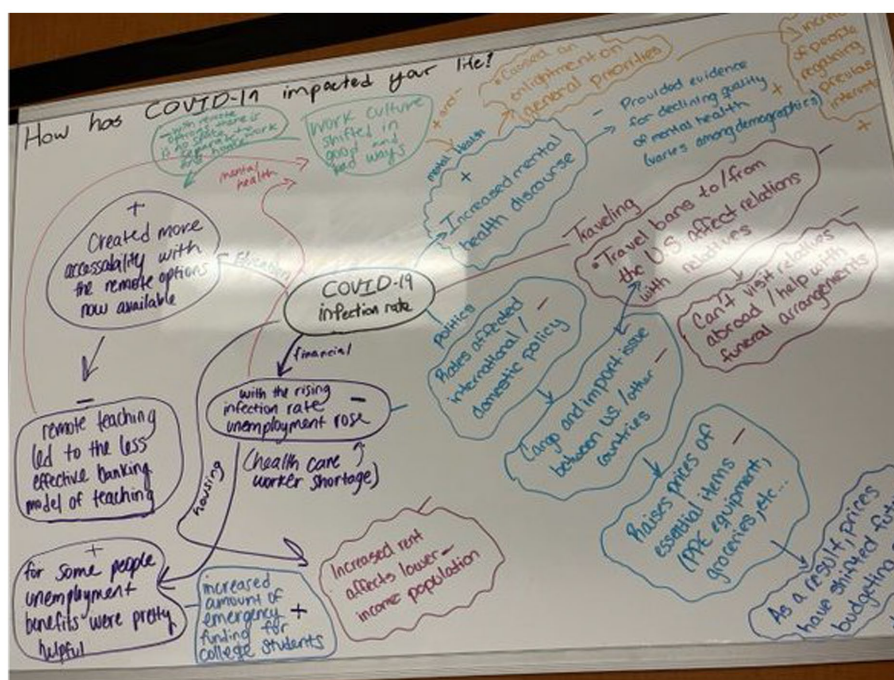 How has COVID-19 impacted your life?
- with remote
options there is
no separate
work
and home
Work culture
shifted in
good and
bad ways
+ and -
• Caused an
enlightment on
general priorities
of people
regaining
previous
mental health
+
Increased mental
health discourse
- Provided evidence
for declining quality
of mental health
(varies among demographics)
+
+
mental
health
+
Created more
accessability with
the remote options
now available
Education
COVID-19
infection rate
Traveling
• Travel bans to/from -
the U.S affect relations
with relatives
Can't visit relatives -
abroad / help with
funeral arrangements
Politics
Rates affected -
international /
domestic policy
Cargo and import issue -
between U.S. / other
countries
Raises prices of -
essential items
(PPE equipment,
groceries, etc...
As a result, prices
have shifted
budgeting
financial
with the rising
infection rate -
unemployment rose
(health care
worker shortage)
-
remote teaching
led to the less
effective banking
model of teaching
housing
+
for some people
unemployment
benefits were pretty
helpful
increased
amount of
emergency +
funding for
college students
Increased rent -
affects lower-
income population